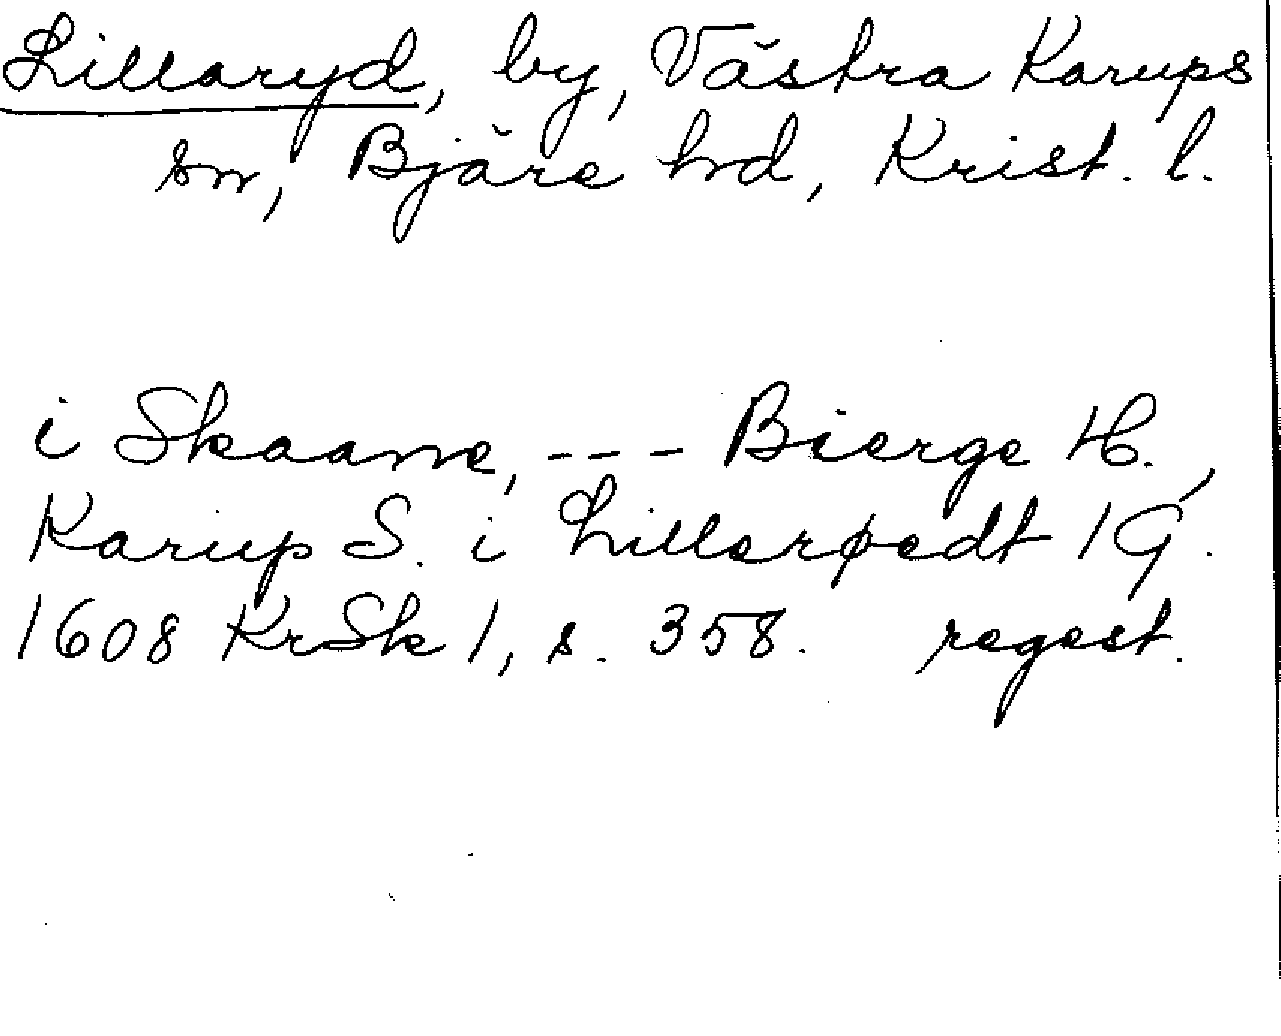 Lillaryd, by, Västra Karups
sn, Bjäre hd, Krist. l.
i Skaane, --- Bierge H.,
Karup S. i Lillerødt 1 G.
1608 KrSk 1, s. 358. regest.